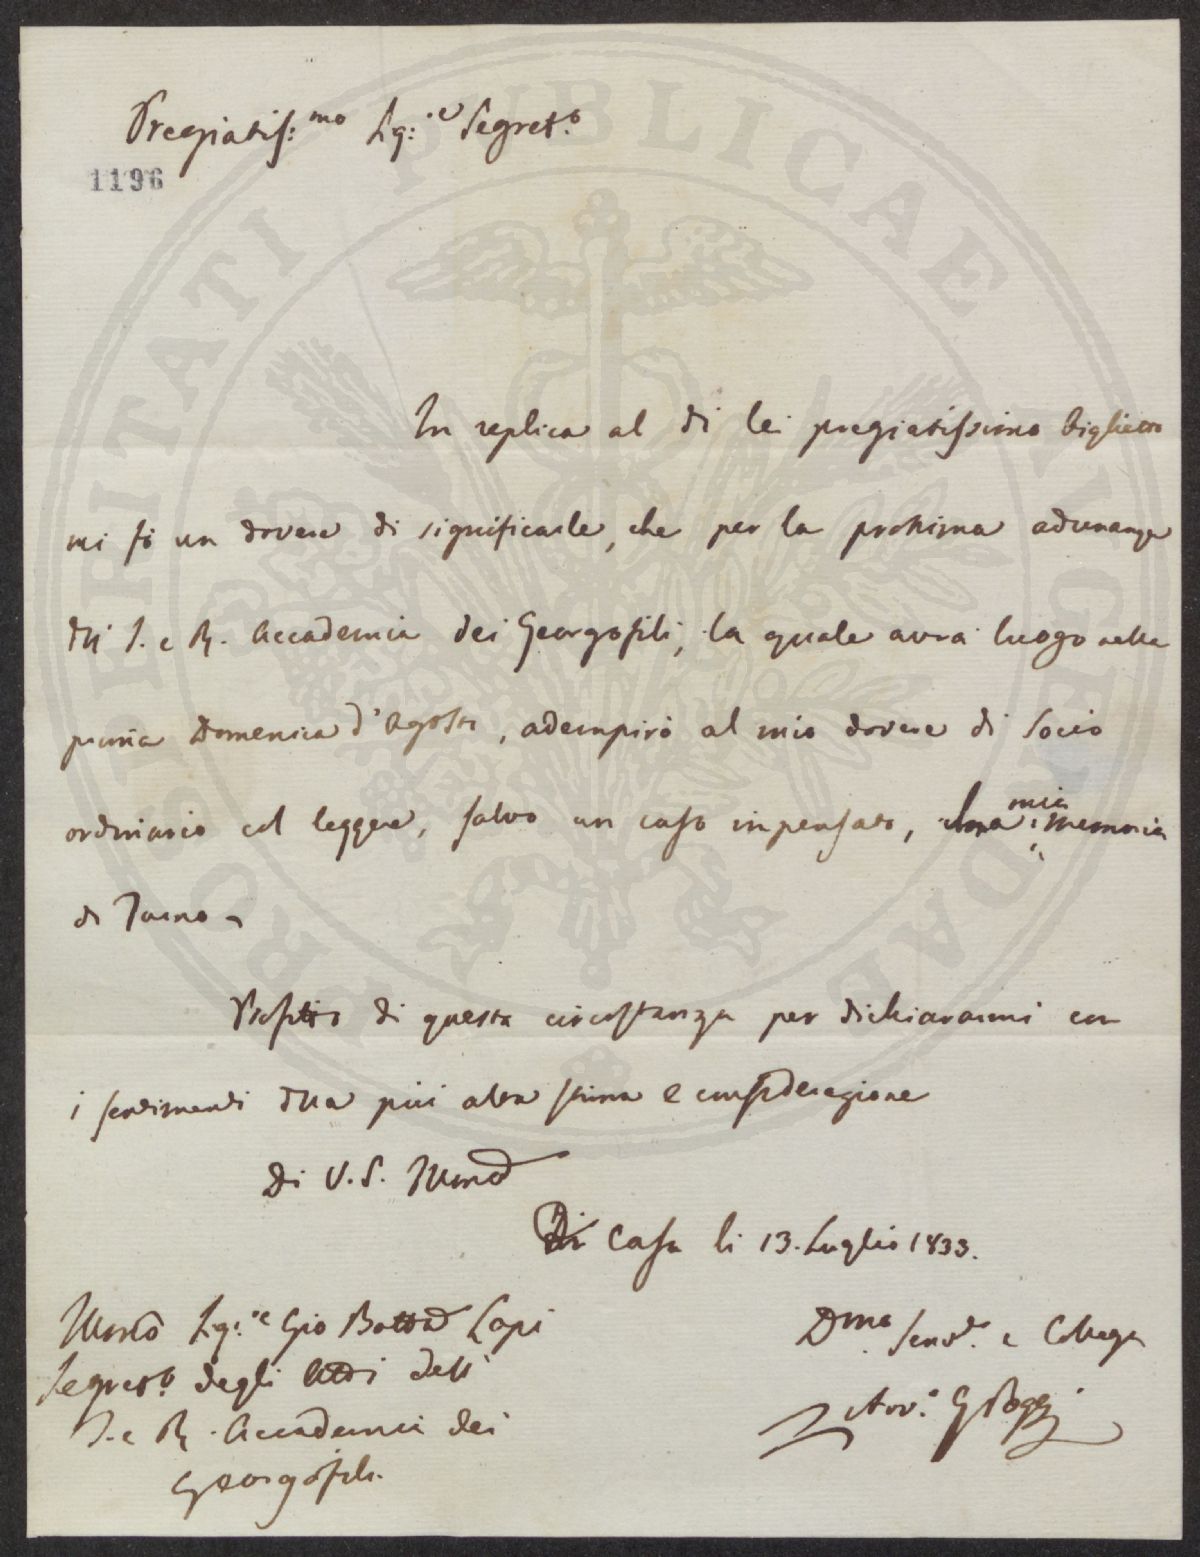 Pregiatiss:mo Sig:re Segret.o
1196
In replica al di lei pregiatissimo biglietto
mi fò un dovere di significarle, che per la prossima adunanza
dell' I. e R. Accademia dei Georgofili, la quale avrà luogo nella
prima Domenica d'Agosto, adempirò al mio dovere di Socio
ordinario col leggere, salvo un caso inpensato, una mia memoria
di Turno.
Profitto di questa circostanza per dichiararmi con
i sentimenti della più alta stima e considerazione
Di V. S. Illma
Di Casa li 13. Luglio 1833.
Illmo Sig:re Gio Batta Lapi
Segret.o degli Atti dell'
I. e R. Accademia dei
Georgofili.
Dmo Servo e Collega
Avv.o G Poggi
PROSPERITATI PUBLICAE AUGENDAE